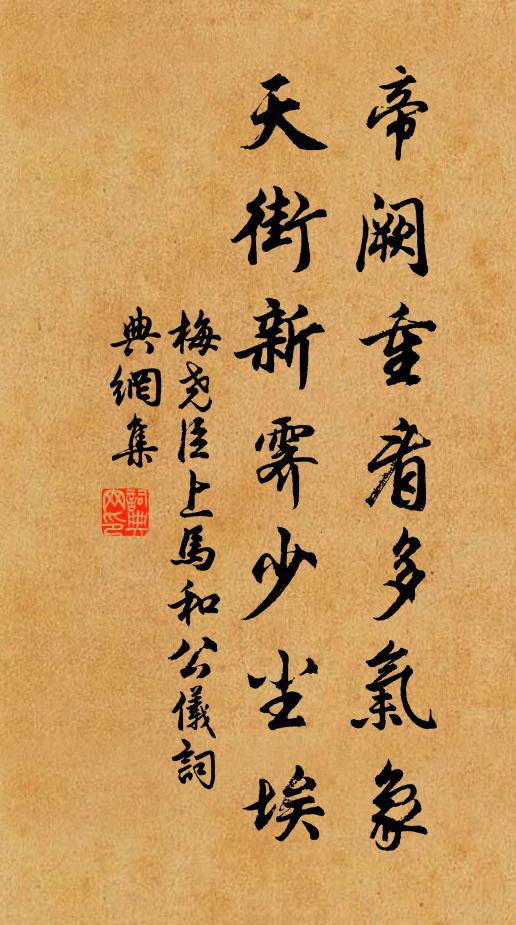 帝阙重看多氣象
天街新霽少尘埃
梅尧臣上馬和公儀詞
典網集
詞典
网印